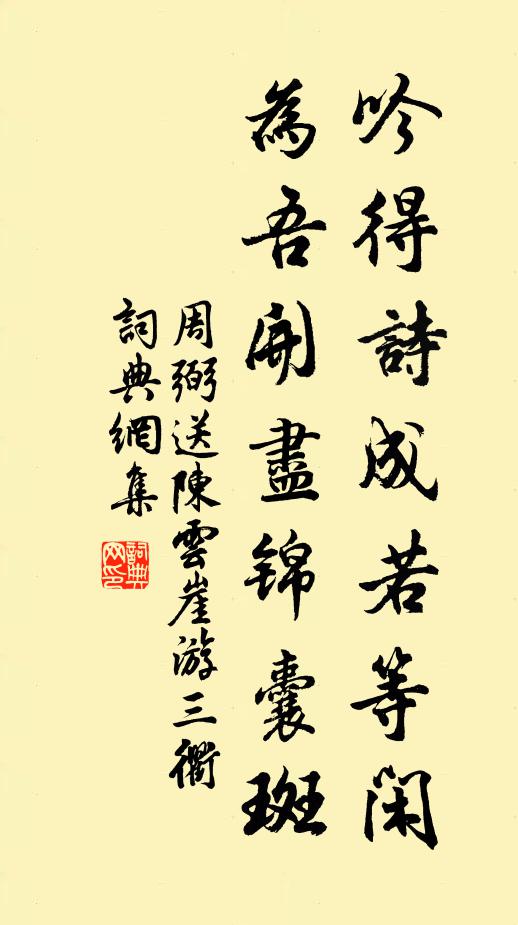 吟得詩成若等閑
為吾開盡錦囊斑
周弼送陳雲崖游三衢
詞典網集
詞典网印